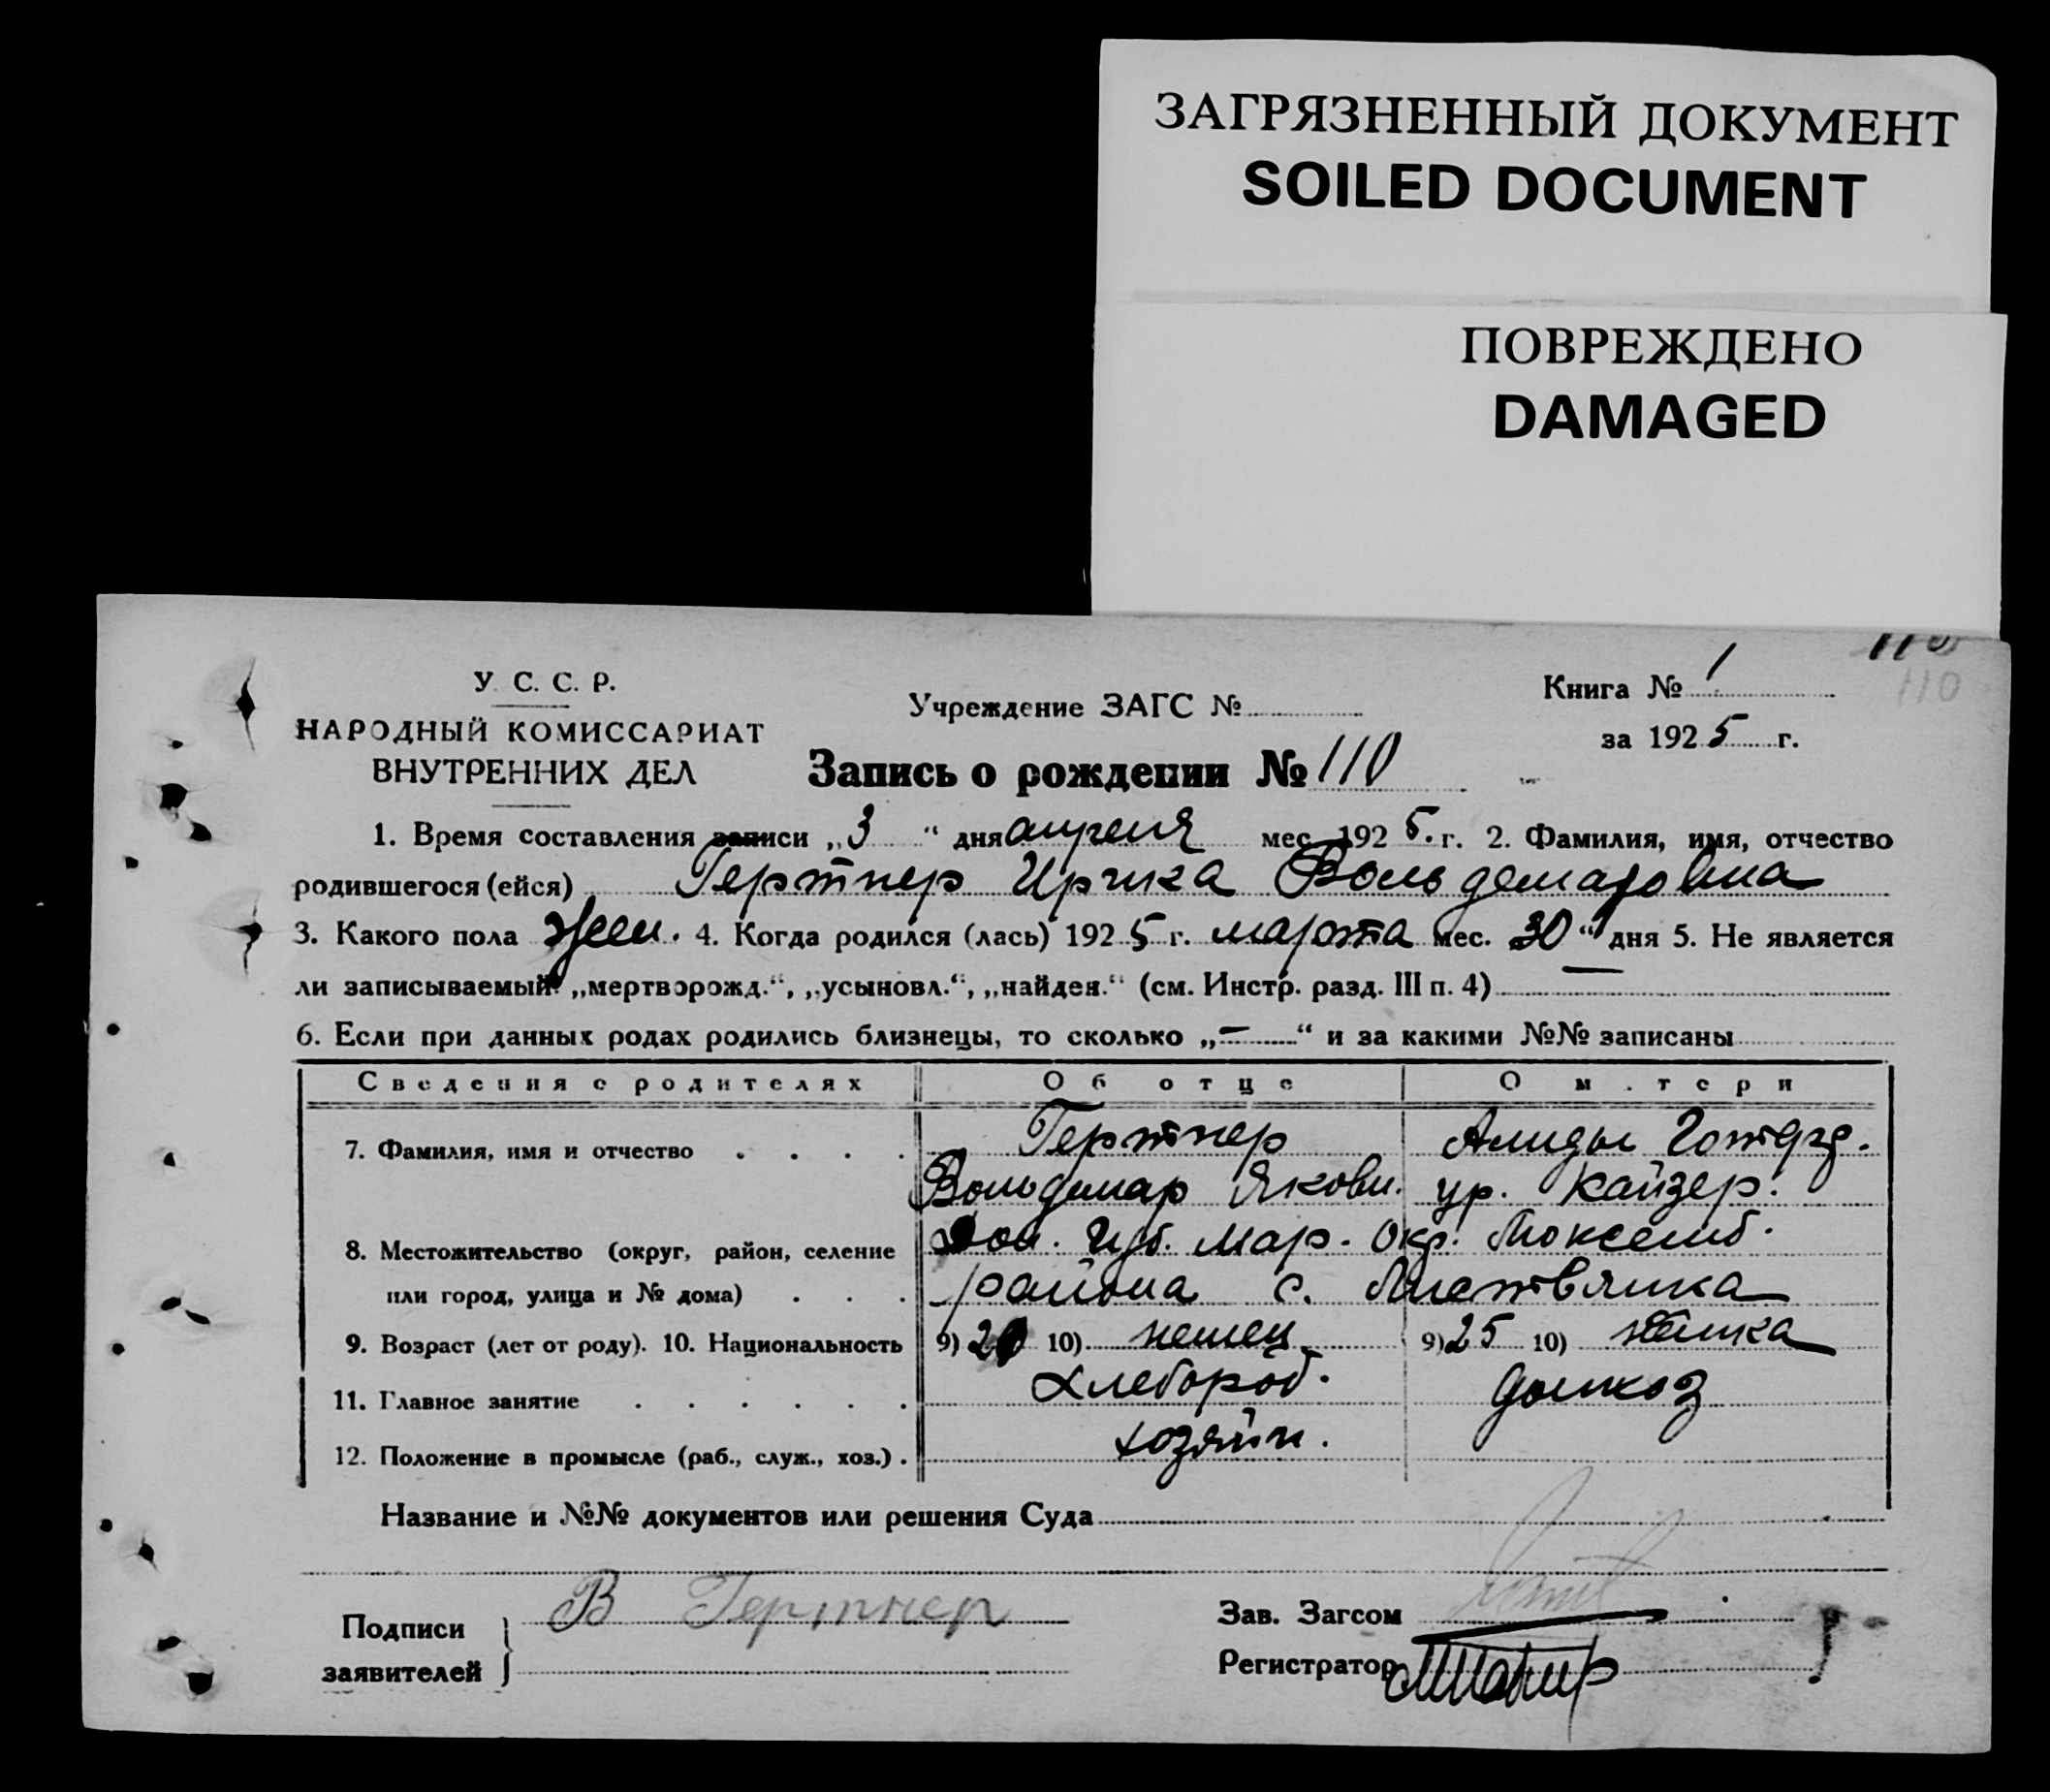 ЗАГРЯЗНЕННЫЙ ДОКУМЕНТ
SOILED DOCUMENT
ПОВРЕЖДЕНО
DAMAGED
110
110
У. С. С. Р.
НАРОДНЫЙ КОМИССАРИАТ
ВНУТРЕННИХ ДЕЛ
Учреждение ЗАГС №
Книга № 1
за 1925 г.
Запись о рождении № 110
1. Время составления записи „3“ дня апреля мес. 1925. г. 2. Фамилия, имя, отчество
родившегося (ейся) Гертнер Воль демаровна
3. Какого пола жен. 4. Когда родился (лась) 1925 г. марта мес. 30 “ дня 5. Не является
ли записываемый: „мертворожд.“, „усыновл.“, „найден.“ (см. Инстр. разд. III п. 4) —
6. Если при данных родах родились близнецы, то сколько „—“ и за какими №№ записаны
Сведения о родителях Об отце О матери
7. Фамилия, имя и отчество Гертнер Алиды
Вольдемар Якови. ур. Кайзер.
8. Местожительство (округ, район, селение Дон. Губ. Мар. Окр.
или город, улица и № дома) района с.
9. Возраст (лет от роду). 10. Национальность 9) 10) немец 9) 25 10) немка
11. Главное занятие хлебороб. домхоз
12. Положение в промысле (раб., служ., хоз.) хозяин.
Название и №№ документов или решения Суда
Подписи
заявителей
В Гертнер
Зав. Загсом
Регистратор